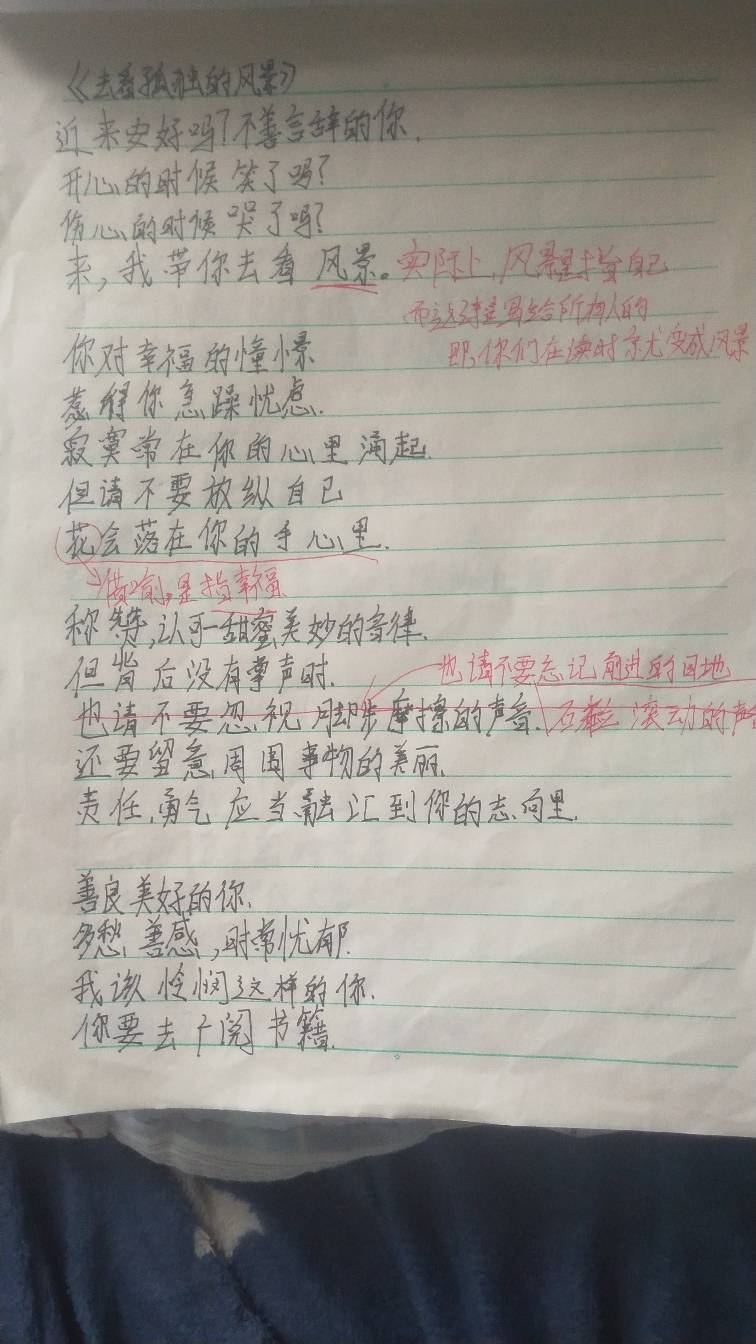 《去看孤独的风景》
近来安好吗?不善言辞的你.
开心的时候笑了吗?
伤心的时候哭了吗?
来,我带你去看风景。实际上,风景是指自己
而这诗是写给所有人的
即,你们在读时京尤变成风景
你对幸福的憧憬
惹得你急躁忧虑.
寂寞常在你的心里涌起.
但请不要放纵自己
花会落在你的手心里.
借喻,是指幸福
称赞,认可—甜蜜美妙的音律.
但背后没有掌声时.
也请不要忘记前进的目地
也请不要忽视脚步摩擦的声音.石粒滚动的声音
还要留意周围事物的美丽.
责任,勇气应当融汇到你的志向里.
善良美好的你.
多愁善感,时常忧郁.
我该怜悯这样的你.
你要去阅书籍.